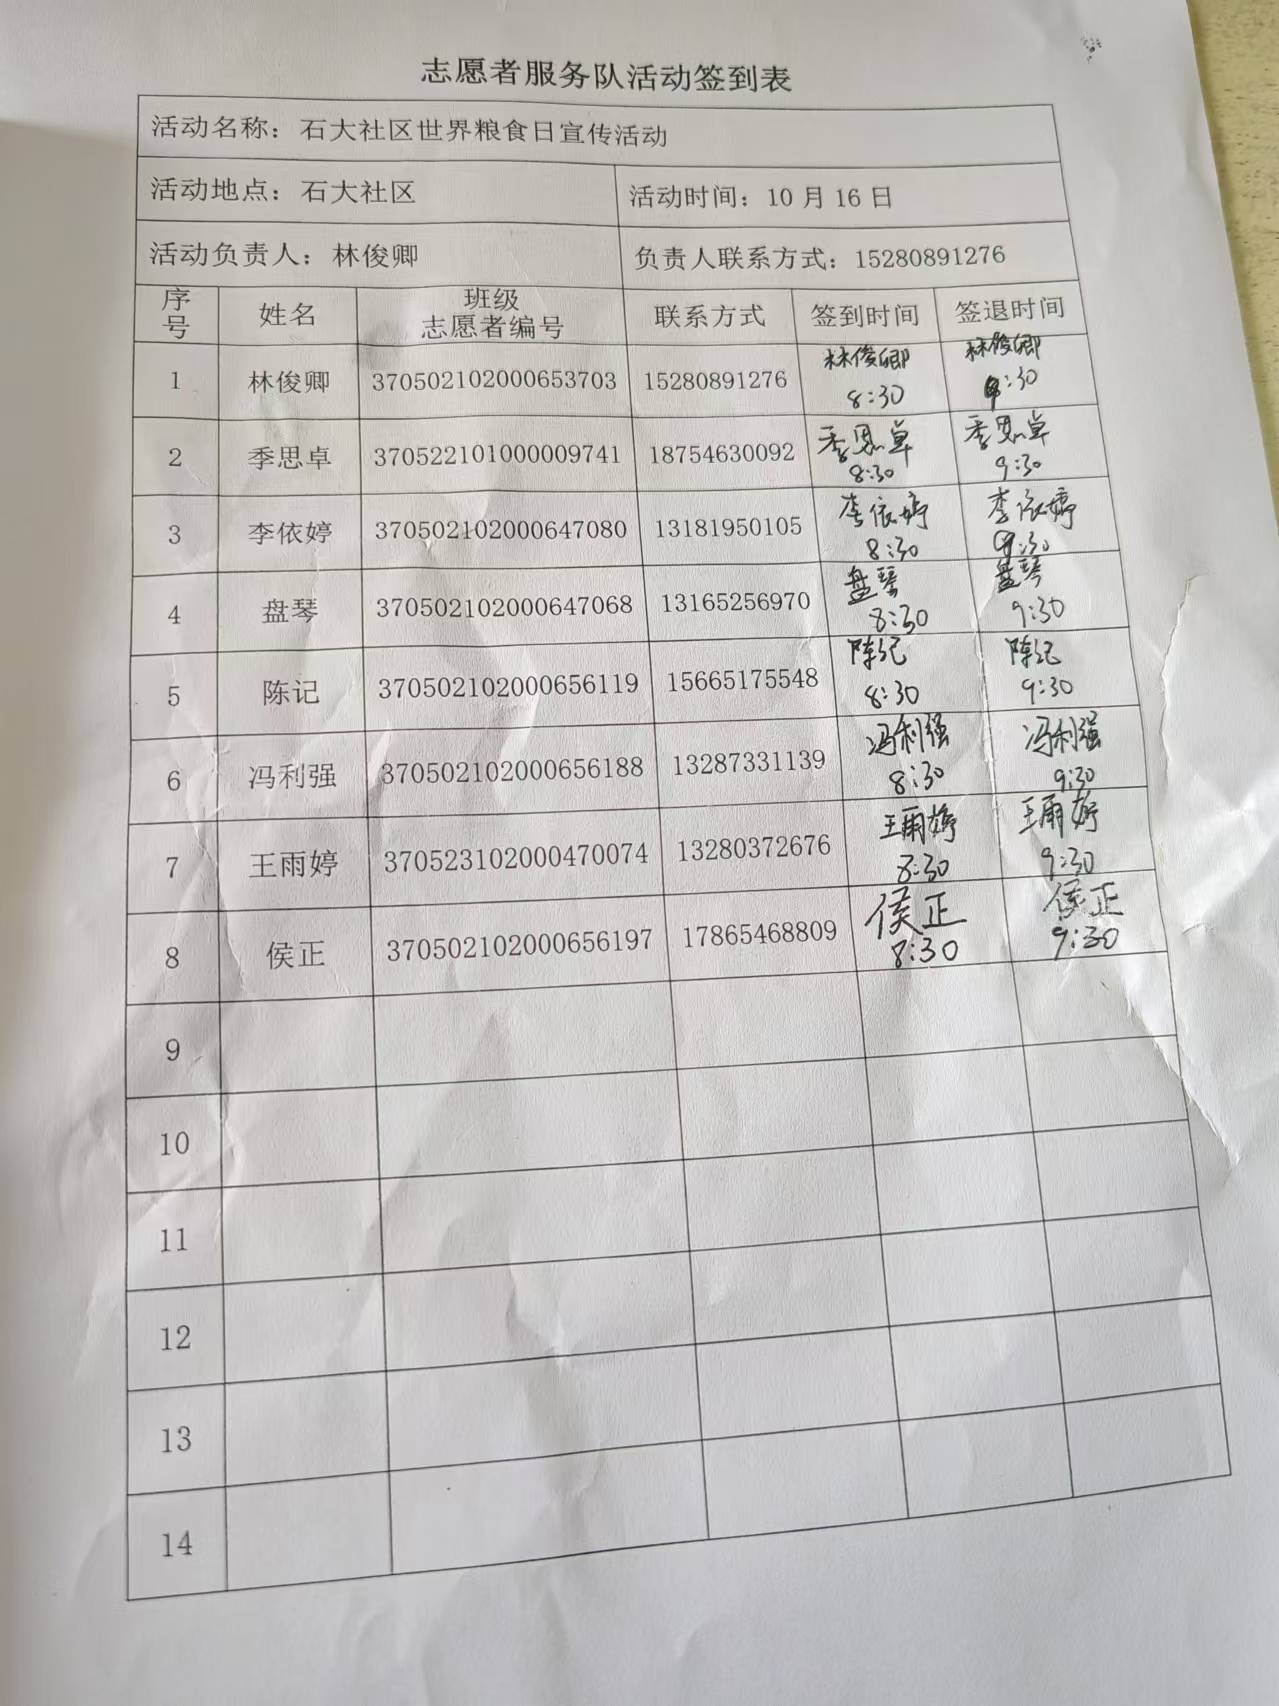 志愿者服务队活动签到表
活动名称：石大社区世界粮食日宣传活动
活动地点：石大社区 活动时间：10 月 16 日
活动负责人：林俊卿 负责人联系方式：15280891276
序号 姓名 班级 志愿者编号 联系方式 签到时间 签退时间
1 林俊卿 370502102000653703 15280891276 林俊卿 8:30 林俊卿 9:30
2 季思卓 370522101000009741 18754630092 季思卓 8:30 季思卓 9:30
3 李依婷 370502102000647080 13181950105 李依婷 8:30 李依婷 9:30
4 盘琴 370502102000647068 13165256970 盘琴 8:30 盘琴 9:30
5 陈记 370502102000656119 15665175548 陈记 8:30 陈记 9:30
6 冯利强 370502102000656188 13287331139 冯利强 8:30 冯利强 9:30
7 王雨婷 370523102000470074 13280372676 王雨婷 8:30 王雨婷 9:30
8 侯正 370502102000656197 17865468809 侯正 8:30 侯正 9:30
9
10
11
12
13
14